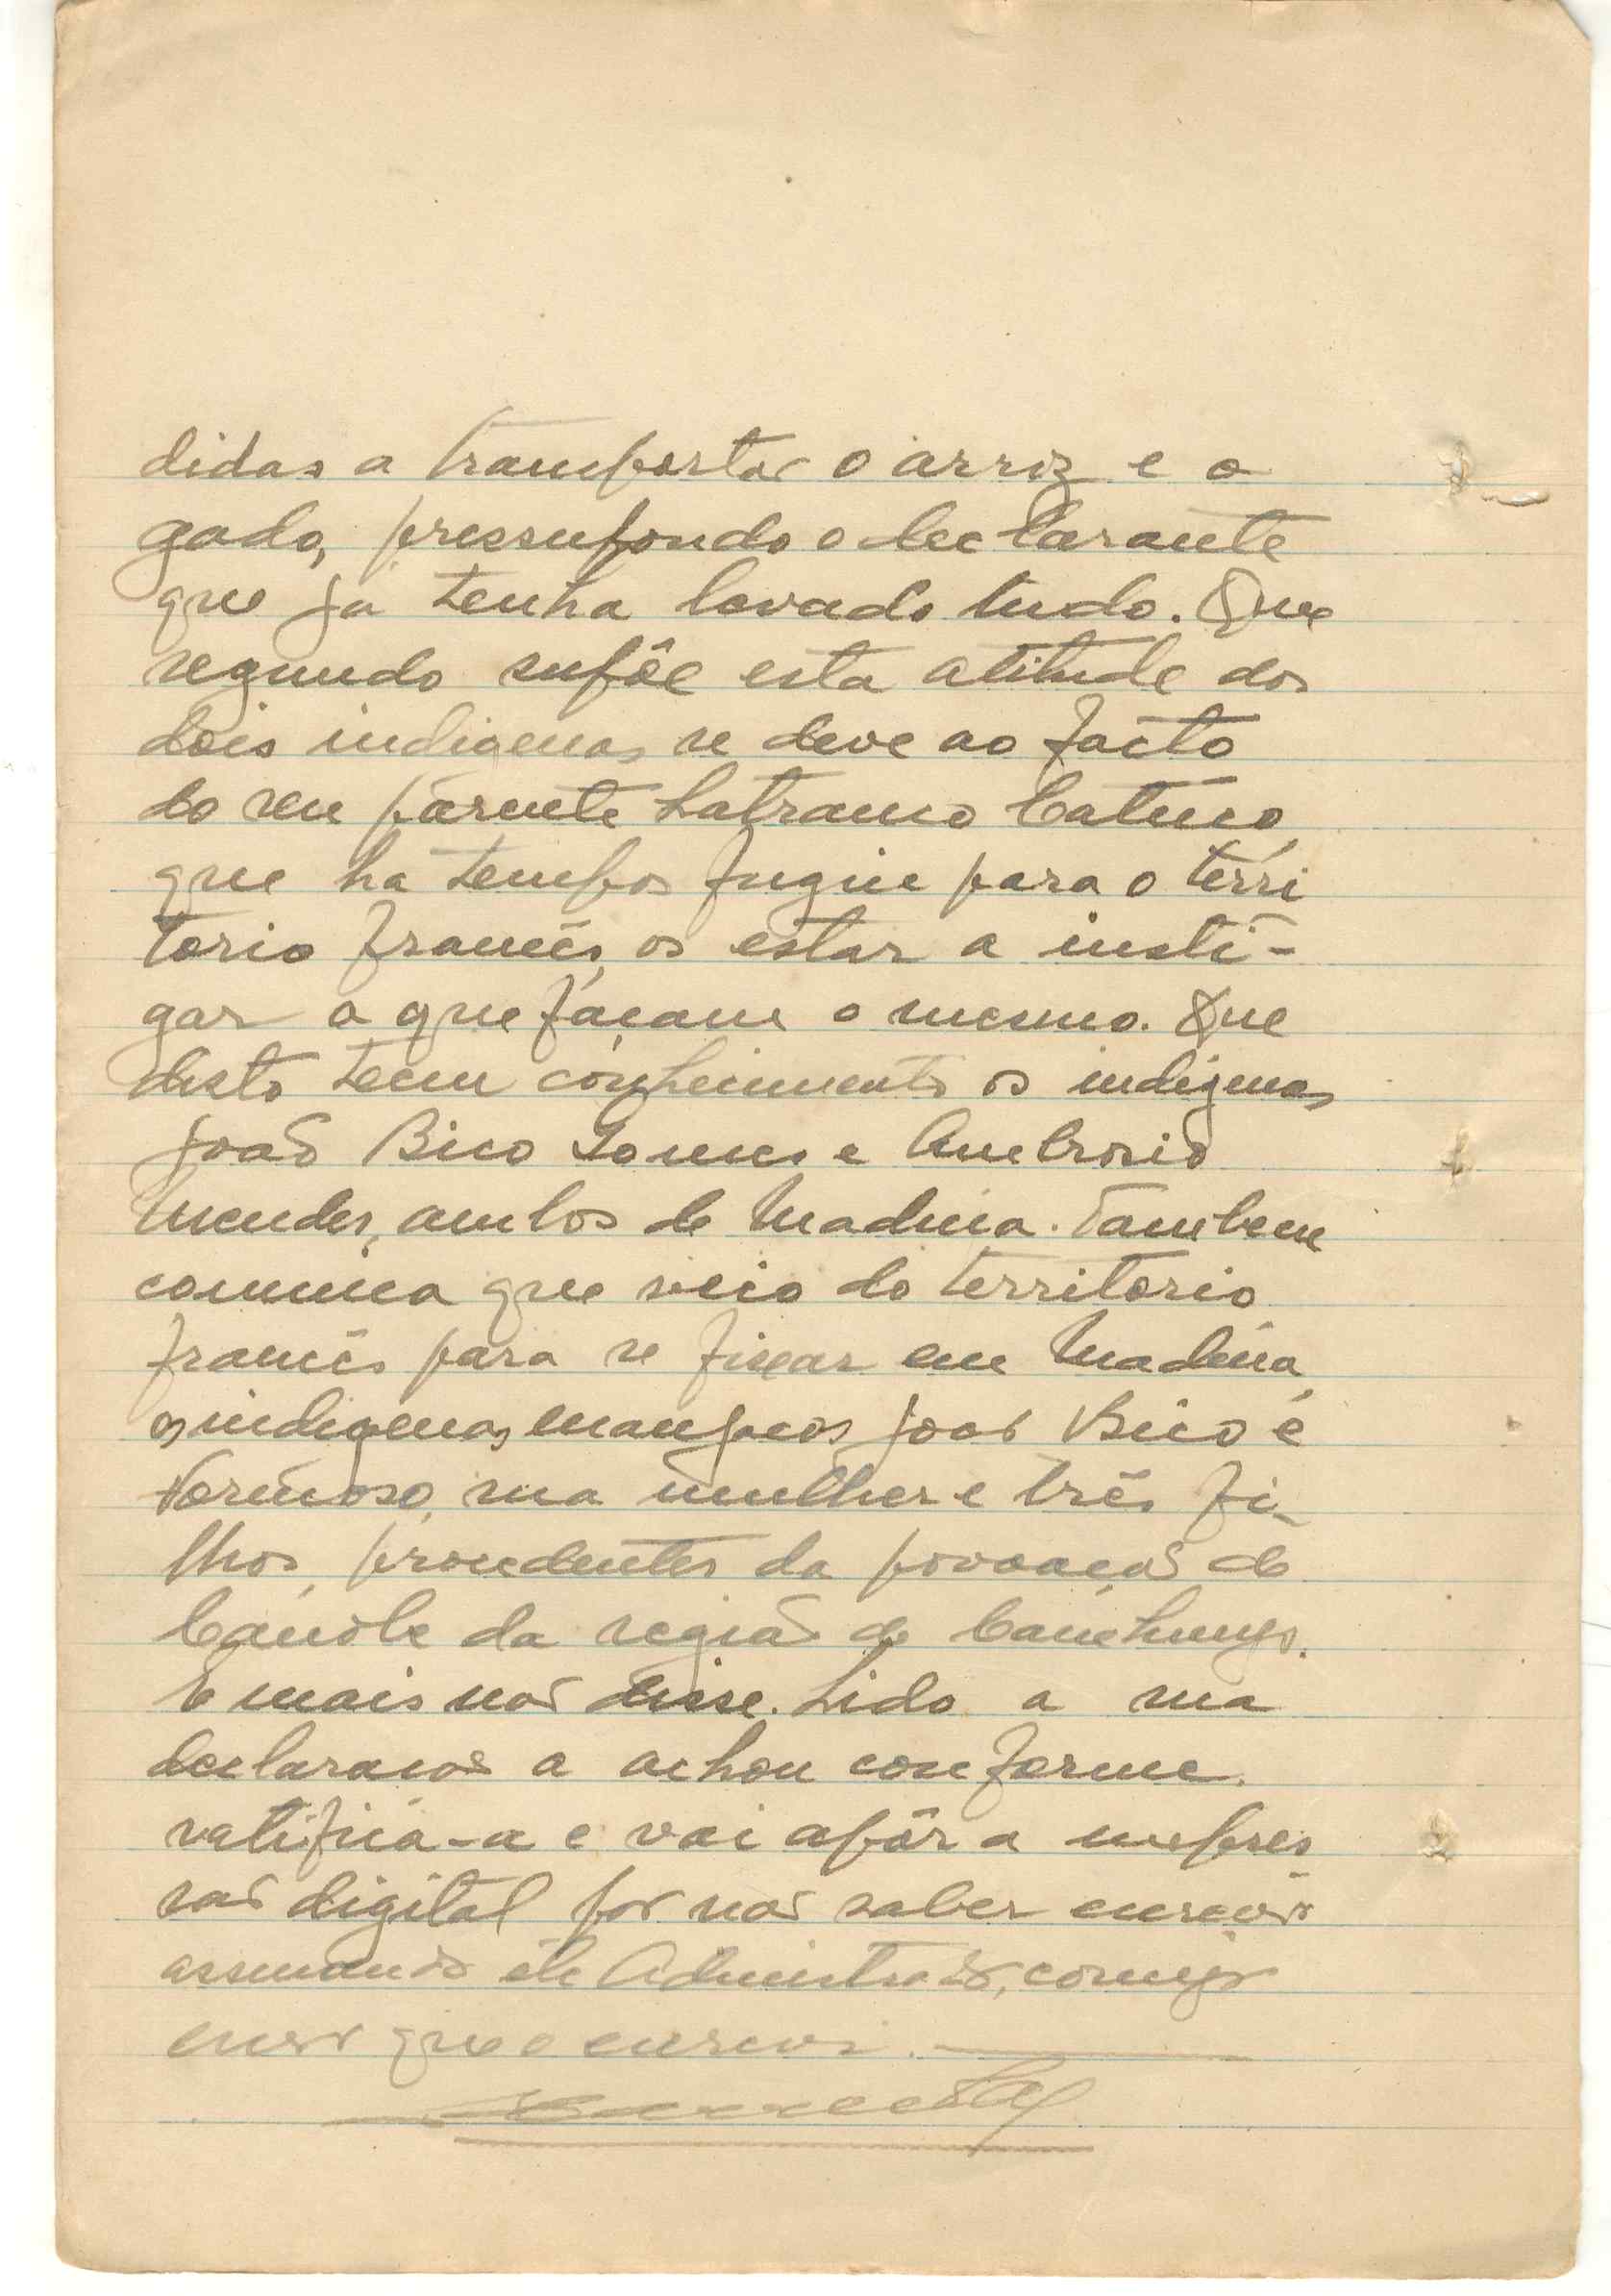 didas a transportar o arroz e o
gado, pressupondo o declarante
que já tenha levado tudo. Que
segundo supõe esta atitude dos
dois indigenas se deve ao facto
do seu parente Latranco Catuco,
que ha tempos fugiu para o terri
torio francês, os estar a insti-
gar a que façam o mesmo. Que
disto teem conhecimento os indigenas
João Bico Gomes e Ambrosio
Mendes, ambos de Madina. Tambem
comunica que veio do territorio
francês para se fixar em Madina,
os indigenas manjacos João Bico e
Formoso, sua mulher e três fi-
lhos, procedentes da povoação de
da região de Canchungo.
E mais não disse. Lido a sua
declaração a achou conforme,
ratifica-a e vai apôr a impres
são digital por não saber escrever
assinando êle Administrador, comigo
que o escrevi.